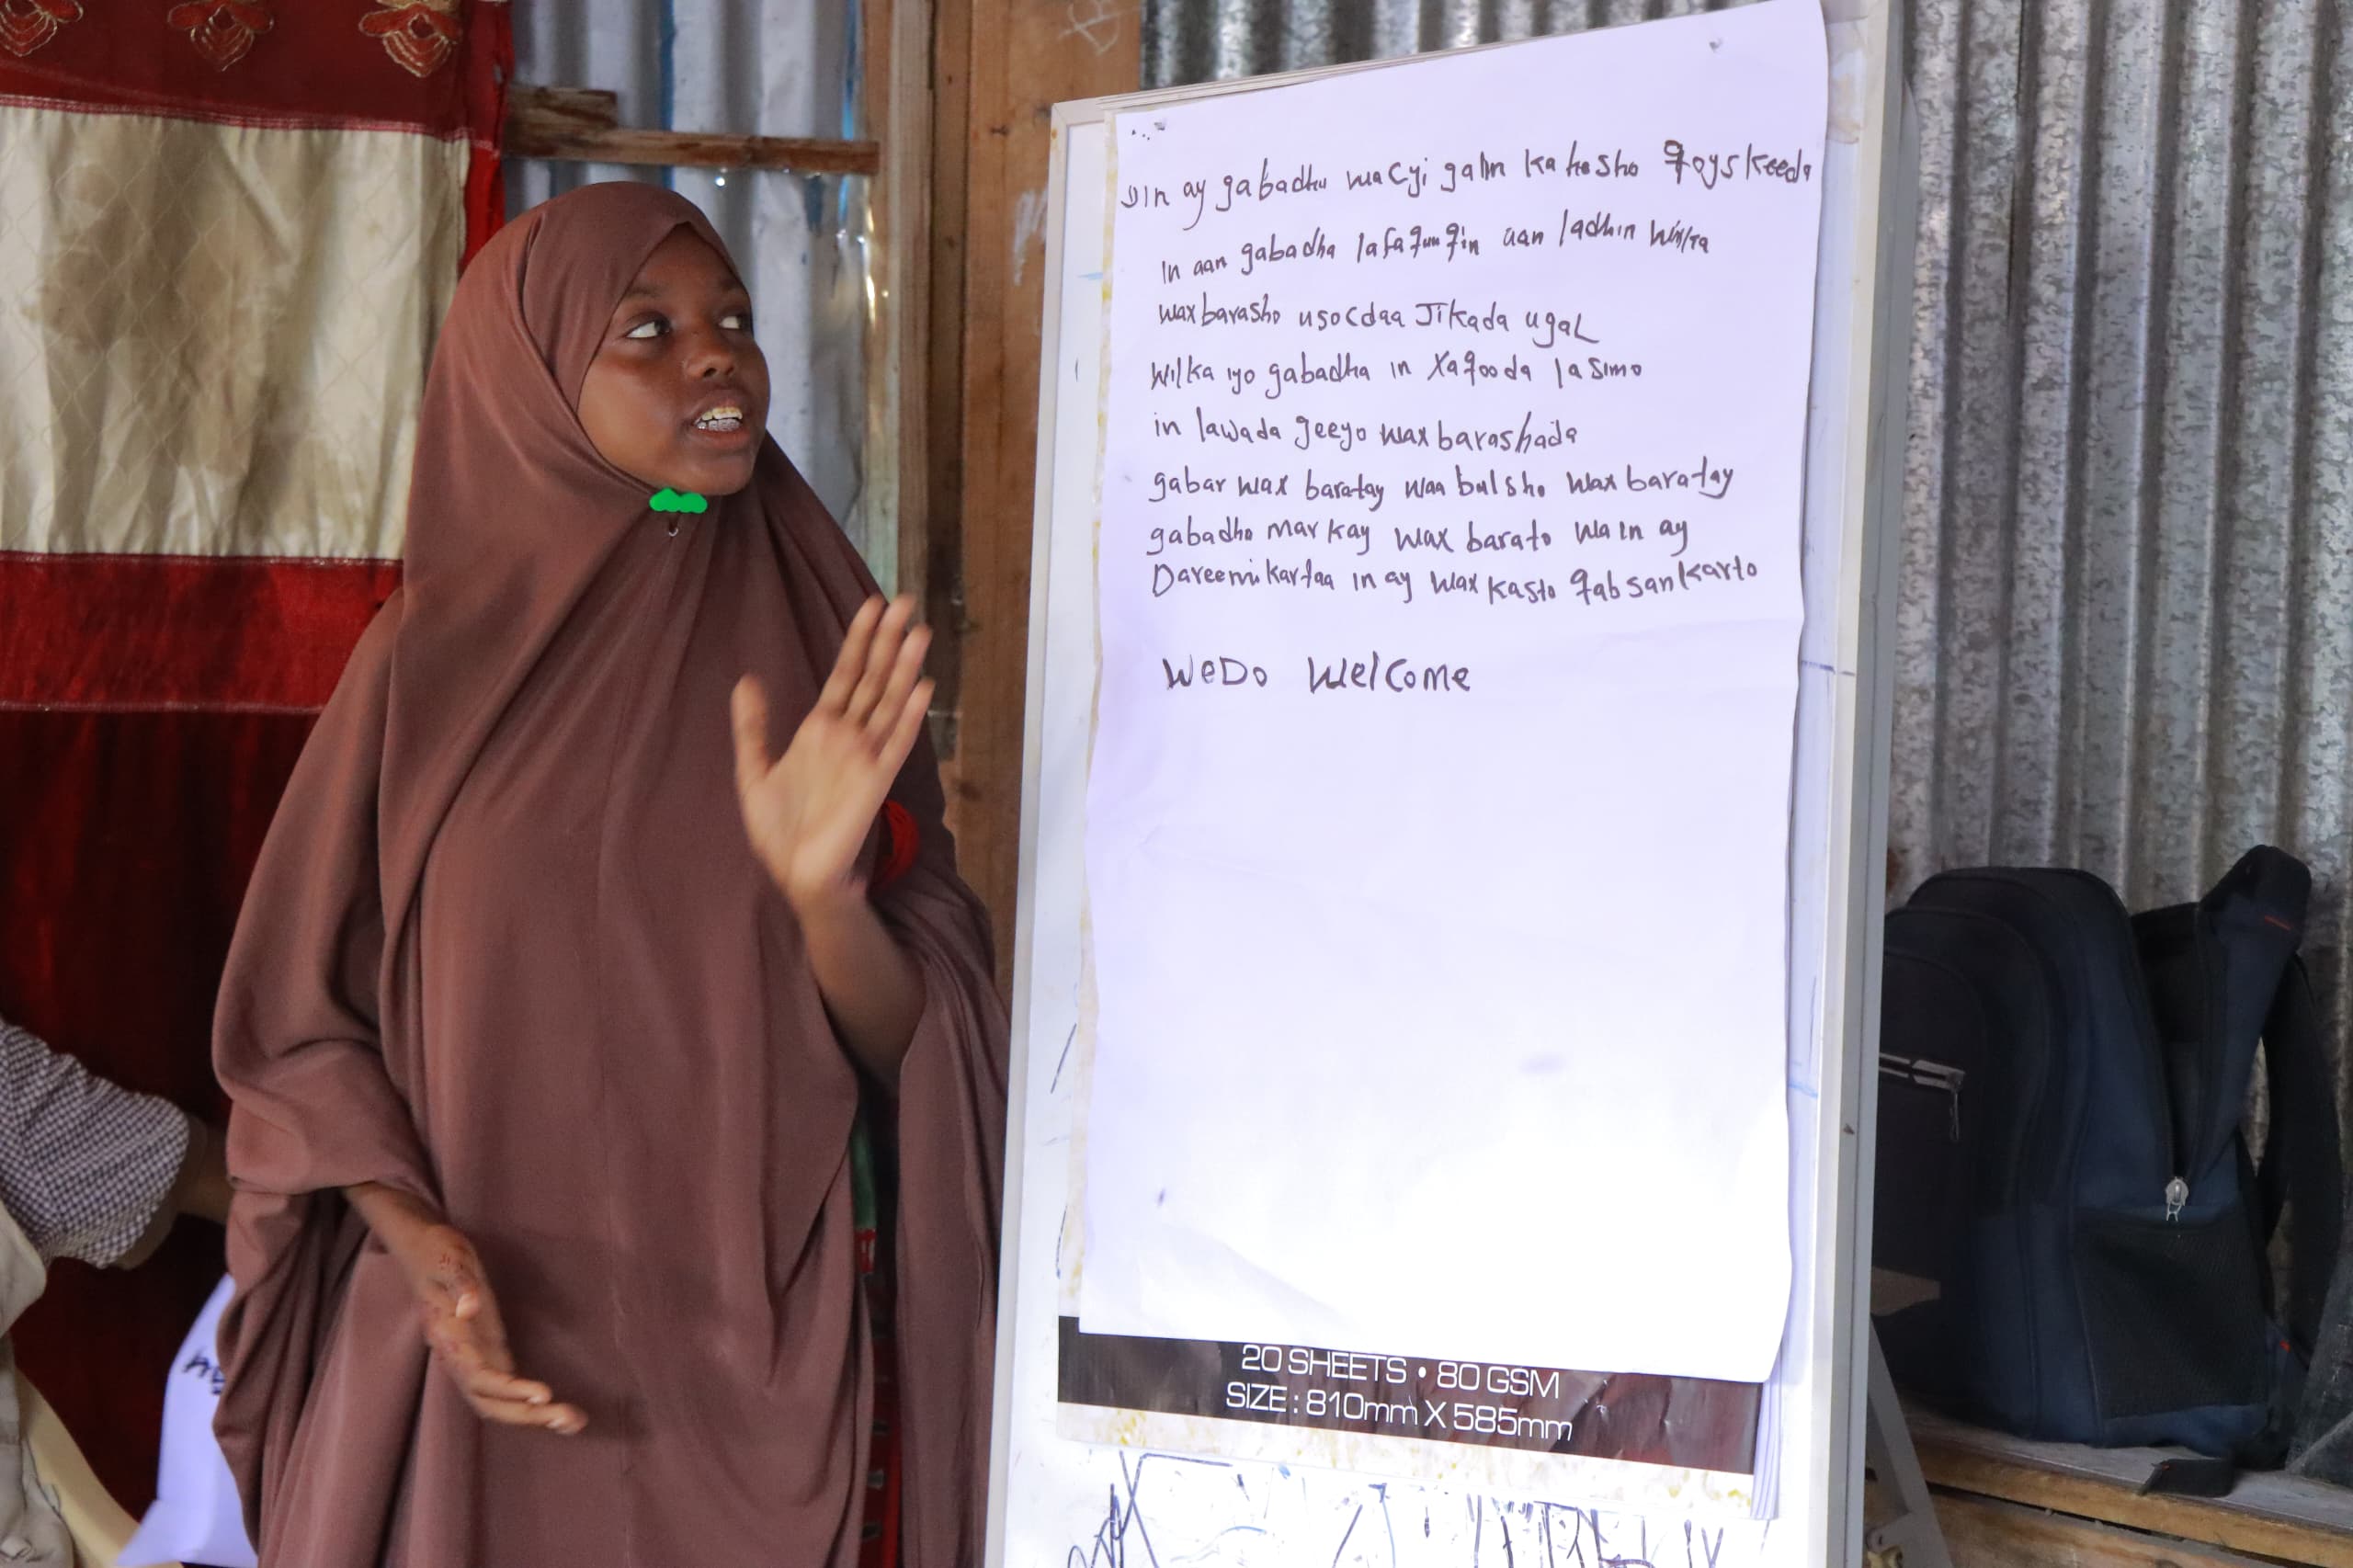 in ay gabadhu wacyi galin ka hesho qoyskeeda
in aan gabadha lafaqunqin aan ladhin wiilka
waxbarasho usocdaa Jikada ugal
wilka iyo gabadha in Xaqooda lasimo
in lawada geeyo waxbarashada
gabar wax baratay waa bulsho wax baratay
gabadho markay wax barato wa in ay
Dareemi kartaa in ay wax kasto qabsankarto
WeDo Welcome
20 SHEETS • 80 GSM
SIZE : 810mm X 585mm